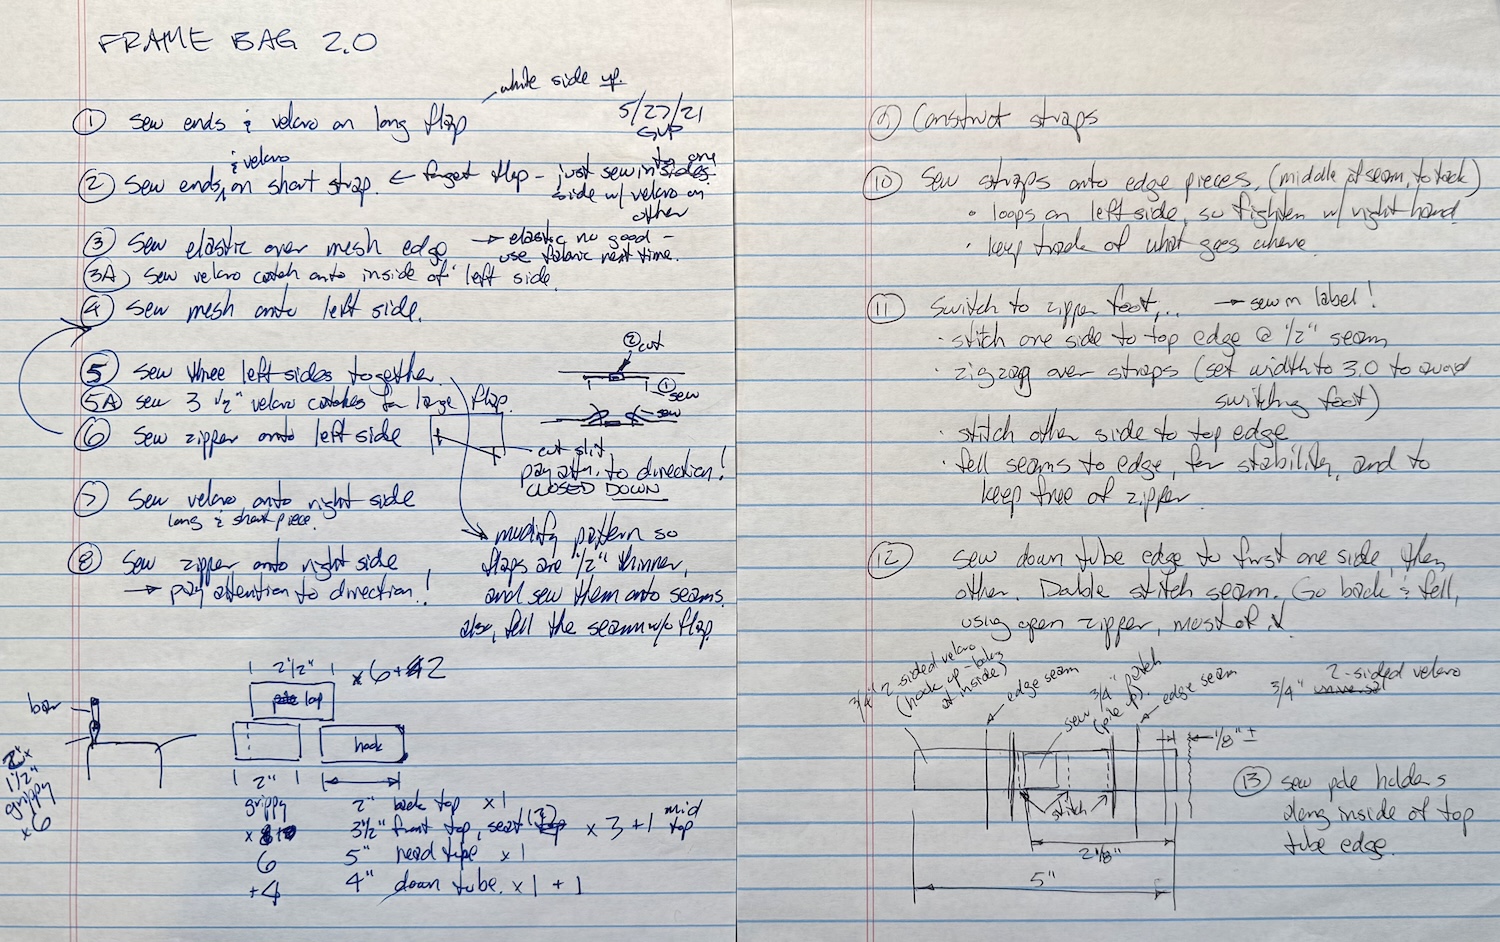 FRAME BAG 2.0
white side up.
5/27/21
GVP
① Sew ends & velcro on long flap
② Sew ends & velcro on short strap. ← forget flap - just sew in sides.
to one
side w/ velcro on
other
③ Sew elastic over mesh edge → elastic no good -
use fabric next time.
3A) Sew velcro catch onto inside of left side.
④ Sew mesh onto left side.
⑤ Sew three left sides together.
5A sew 3 1/2" velcro catches for large flap.
⑥ Sew zipper onto left side
② cut
① sew
sew
cut slit
pay attn. to direction!
CLOSED DOWN
⑦ Sew velcro onto right side
long & short piece.
⑧ Sew zipper onto right side
→ pay attention to direction!
modify pattern so
flaps are 1/2" thinner,
and sew them onto seams.
also, fell the seam w/o flap.
2 1/2"
x6+2
loop
bar
hook
2"x
1 1/2"
grippy
x6
2"
grippy
6
+4
2" back top x1
3 1/2" front top, seat (2) x 3 +1 mid top
5" head tube x1
4" down tube. x1 + 1
⑨ Construct straps
⑩ Sew straps onto edge pieces. (middle of seam, to tack)
• loops on left side, so tighten w/ right hand
• keep track of what goes where.
⑪ Switch to zipper foot... → sew in label!
• stitch one side to top edge @ 1/2" seam
• zigzag over straps (set width to 3.0 to avoid
switching foot)
• stitch other side to top edge
• fell seams to edge, for stability, and to
keep free of zipper.
⑫ Sew down tube edge to first one side, then
other. Double stitch seam. Go back & fell,
using open zipper, most of it.
3/4" 2-sided velcro
(hook up - of inside)
edge seam
sew 3/4" patch
edge seam
3/4" universal 2-sided velcro
1/8" ±
stitch
2 1/8"
5"
⑬ sew pole holders
along inside of top
tube edge.